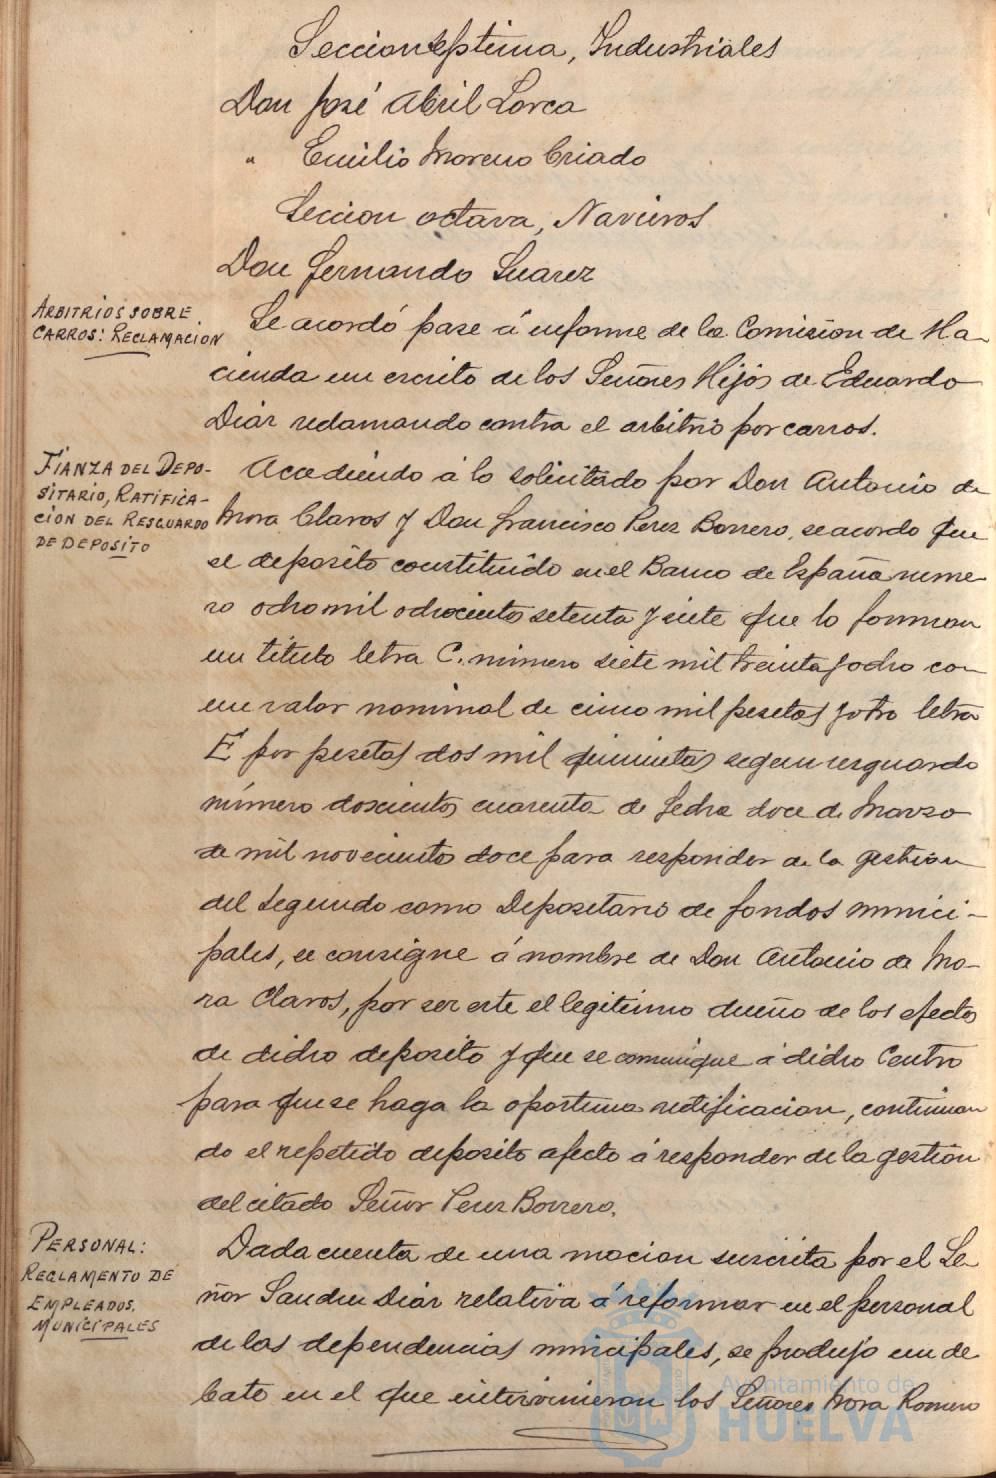 Seccion septima, Industriales
Don José Abril Lorca
" Emilio Moreno Criado
Seccion octava, Navieros
Don Fernando Suarez
ARBITRIOS SOBRE
CARROS: RECLAMACION
Se acordó pase á informe de la Comision de Ha-
cienda un escrito de los Señores Hijos de Eduardo
Diaz reclamando contra el arbitrio por carros.
FIANZA DEL DEPO-
SITARIO, RATIFICA-
CION DEL RESGUARDO
DE DEPOSITO
Accediendo á lo solicitado por Don Antonio de
Mora Claros y Don Francisco Perez Borrero, se acordo que
el deposito constituido en el Banco de España nume-
ro ocho mil ochocientos setenta y siete que lo forman
un titulo letra C. número siete mil treinta y ocho co-
un valor nominal de cinco mil pesetas y otro letra
E por pesetas dos mil quinientas segun resguardo
número doscientos cuarenta de fecha doce de Marzo
de mil novecientos doce para responder de la gestion
del segundo como Depositario de fondos munici-
pales, se consigne á nombre de Don Antonio de Mo-
ra Claros, por ser este el legitimo dueño de los efectos
de dicho deposito y que se comunique á dicho Centro
para que se haga la oportuna rectificacion, continuan
do el repetido deposito afecto á responder de la gestion
del citado Señor Perez Borrero.
PERSONAL:
REGLAMENTO DE
EMPLEADOS.
MUNICIPALES
Dada cuenta de una mocion suscrita por el Se-
ñor Sanchez Diaz relativa á reformar en el personal
de las dependencias municipales, se produjo un de
bate en el que intervinieron los Señores Mora Romero
Ayuntamiento de
HUELVA